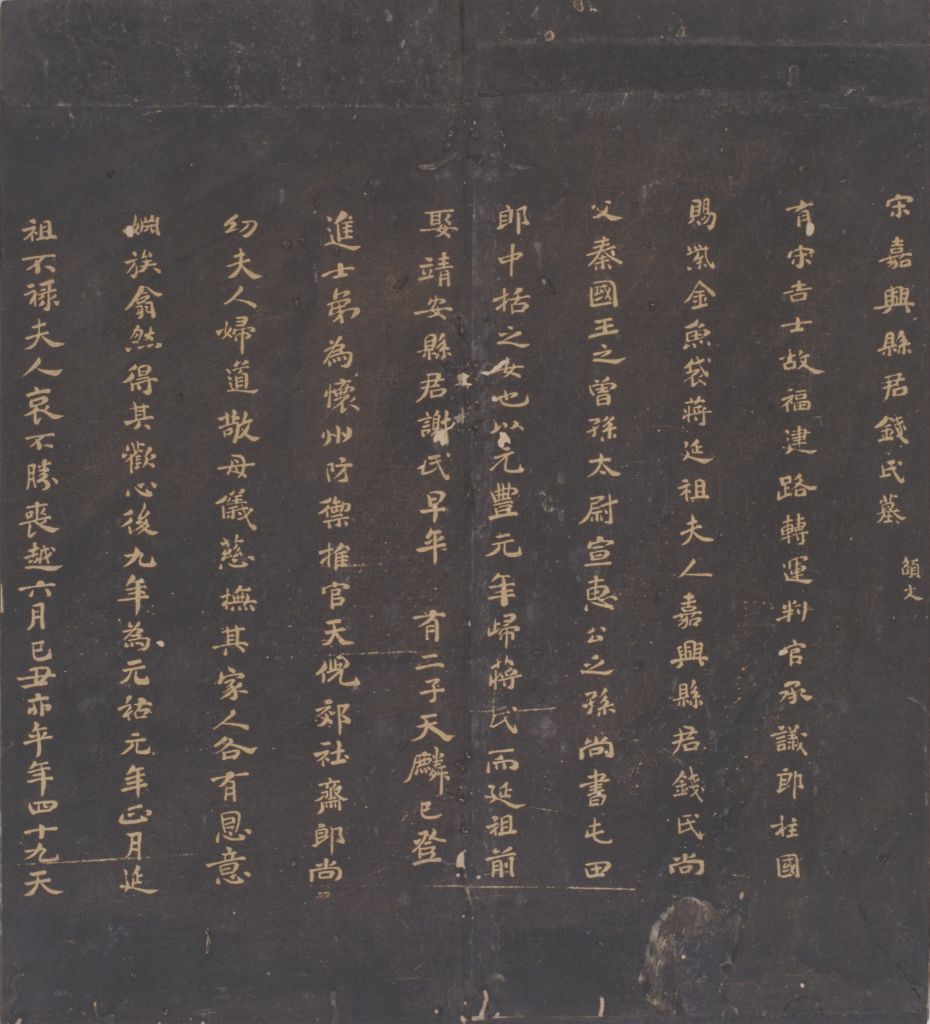 宋嘉興縣君錢氏墓
頟文
有宋吉士故福建路轉運判官承議郎柱國
賜紫金魚袋蔣延祖夫人嘉興縣君錢氏尚
父秦國王之曾孫太尉宣惠公之孫尚書屯田
郎中括之女也以元豐元年歸蔣氏而延祖前
娶靖安縣君謝氏早年 有二子天麟已登
進士弟為懷州防禦推官天倪郊社齋郎尚
幼夫人婦道敬母儀慈撫其家人各有恩意
姻族翕然得其歡心後九年為元祐元年正月延
祖不祿夫人哀不勝喪越六月己丑亦卒年四十九天